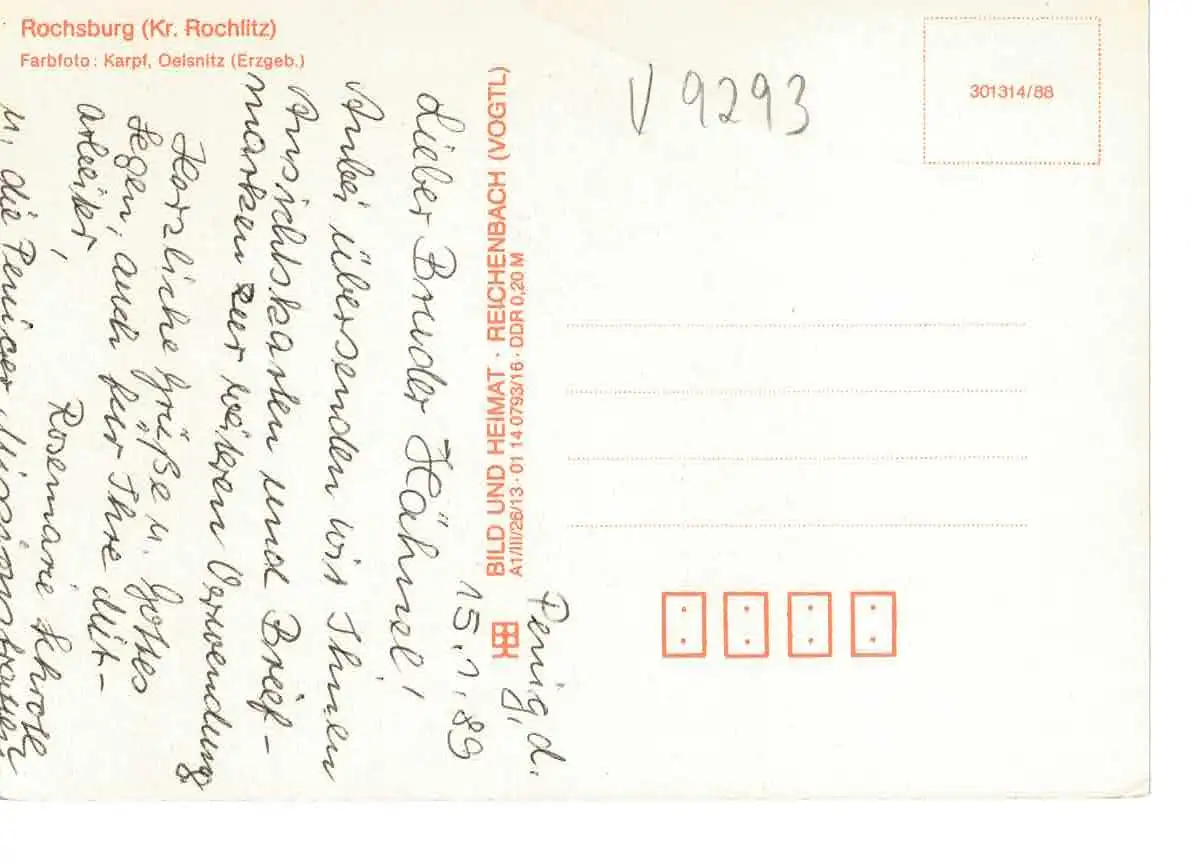 Rochsburg (Kr. Rochlitz)
Farbfoto: Karpf, Oelsnitz (Erzgeb.)
V 9293
301314/88
BILD UND HEIMAT · REICHENBACH (VOGTL)
A1/III/26/13 · 01 14 0793/16 · DDR 0,20 M
Penig, d.
15.1.89
Lieber Bruder Hähnel!
Anbei übersenden wir Ihnen
Ansichtskarten und Brief-
marken zur weiteren Verwendung
Herzliche Grüße u. Gottes
Segen, auch für Ihre Mit-
arbeiter,
Rosemarie Schrote
u. die Peniger Missionsfrauen